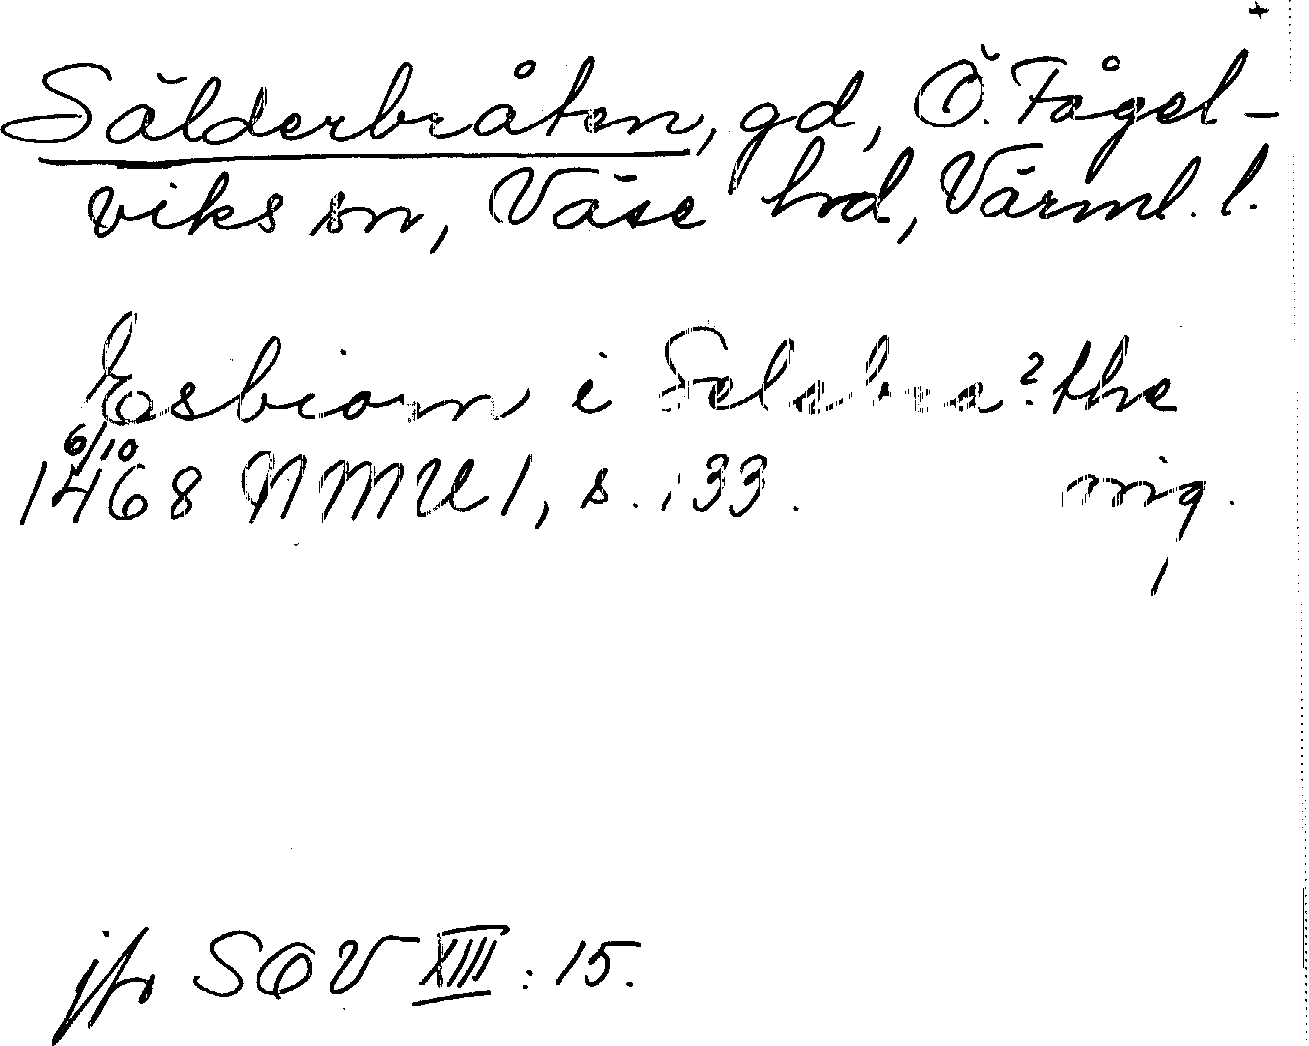 +
Sälderbråten, gd, Ö. Fågel-
viks sn, Väse hrd, Värml. l.
Esbiorn i Selabra?the
6/10
1468 NMU 1, s. 133. nig.
jfr SOV XIII: 15.